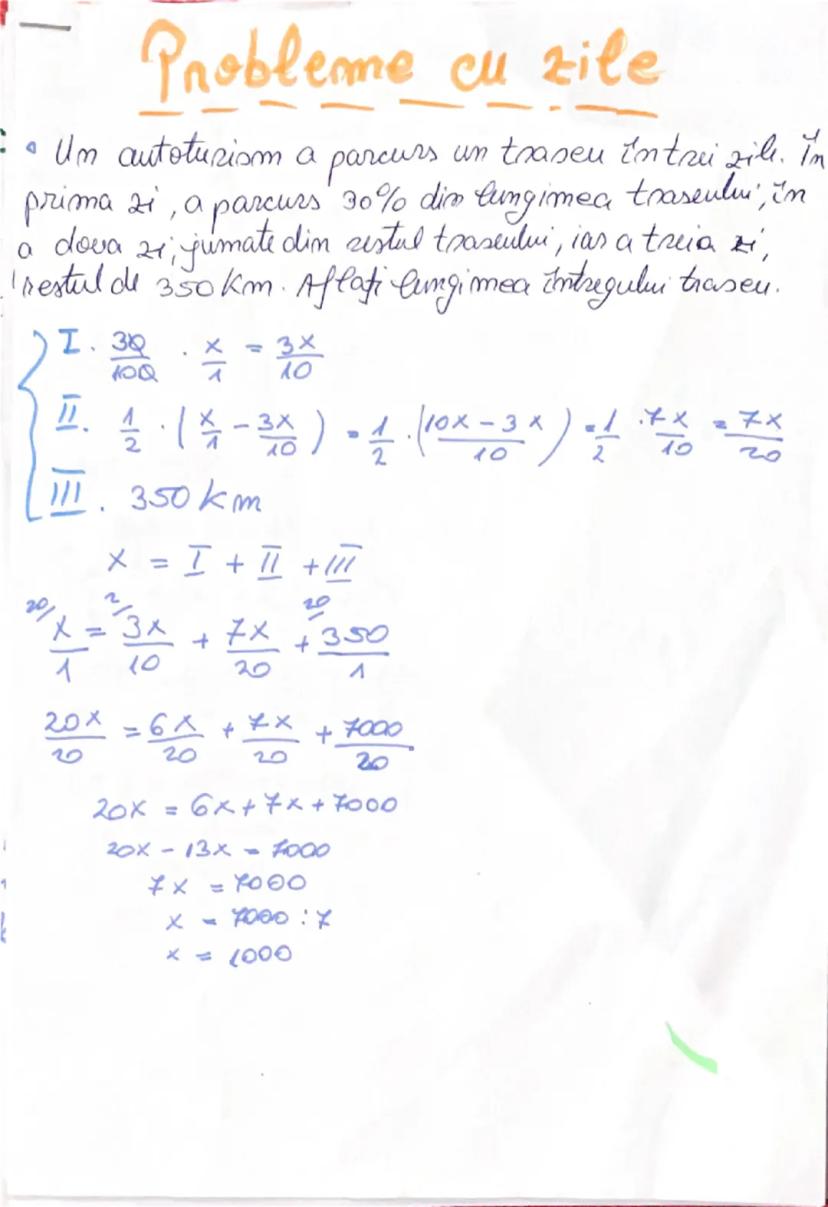 Probleme cu zile
• Un autoturism a parcurs un traseu în trei zile. În
prima zi, a parcurs 30% din lungimea traseului, în
a doua zi, jumate din restul traseului, iar a treia zi,
restul de 350 km. Aflați lungimea întregului traseu.
I. 30/100 · x/1 = 3x/10
II. 1/2 · (x/1 - 3x/10) = 1/2 · (10x - 3x/10) = 1/2 · 7x/10 = 7x/20
III. 350 km
x = I + II + III
20/ x/1 = 2/ 3x/10 + 7x/20 + 20/ 350/1
20x/20 = 6x/20 + 7x/20 + 7000/20
20x = 6x + 7x + 7000
20x - 13x = 7000
7x = 7000
x = 7000 : 7
x = 1000